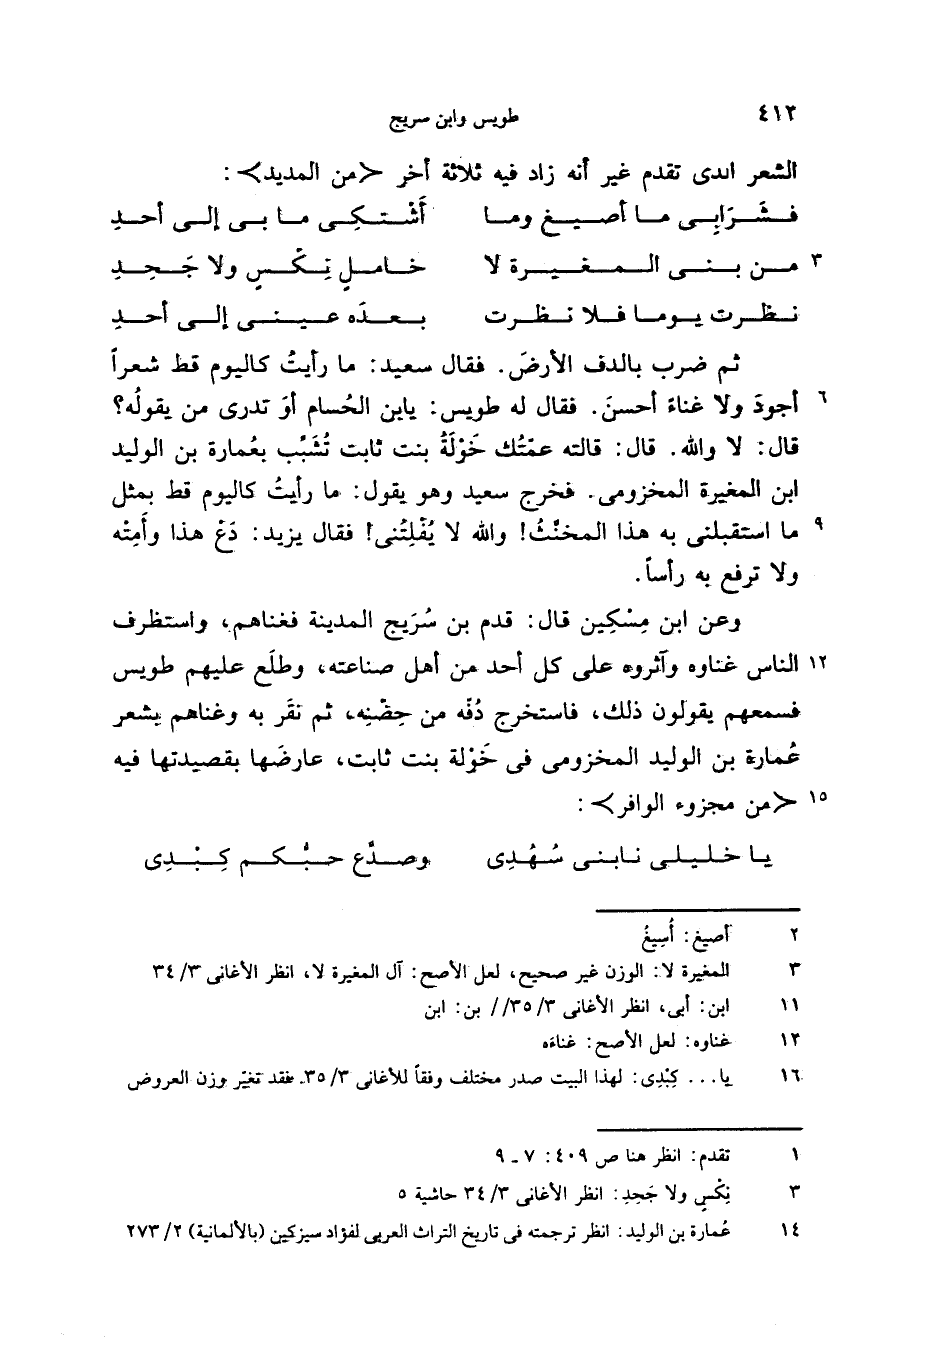 ٤١٢ طويس وابن سريج
الشعر الذى تقدم غير أنه زاد فيه ثلاثة أخر <من المديد>:
فـشَـرَابِـى مـا أصـيـغ ومـا أَشْـتـكِـى مـا بـى إلـى أحـدِ
٣ مـن بـنـى الـمـغـيـرة لا خـامـلٍ نِـكْـسٍ ولا جَـحِـدِ
نـظـرت يـومـا فـلا نـظـرت بـعـدَه عـيـنـى إلـى أحـدِ
ثم ضرب بالدف الأرضَ. فقال سعيد: ما رأيتُ كاليوم قط شعراً
٦ أجودَ ولا غناءً أحسنَ. فقال له طويس: ياين الحُسام أوَ تدرى من يقولُه؟
قال: لا والله. قال: قالته عمّتُك خَوْلَةُ بنت ثابت تُشَبِّب بعُمارة بن الوليد
ابن المغيرة المخزومى. فخرج سعيد وهو يقول: ما رأيتُ كاليوم قط بمثل
٩ ما استقبلنى به هذا المخنَّثُ! والله لا يُفْلِتُنى! فقال يزيد: دَعْ هذا وأَمِتْه
ولا ترفع به رأساً.
وعن ابن مِسْكِين قال: قدم بن سُرَيج المدينة فغناهم، واستظرف
١٢ الناس غناوه وآثروه على كل أحد من أهل صناعته، وطلَع عليهم طويس
فسمعهم يقولون ذلك، فاستخرج دُفَّه من حِضْنِه، ثم نقَر به وغناهم بشعر
عُمارة بن الوليد المخزومى فى خَوْلة بنت ثابت، عارضَها بقصيدتها فيه
١٥ <من مجزوء الوافر>:
يـا خـلـيـلى نـابـنـى سُـهُـدِى وصـدَّع حـبُّـكـم كِـبْـدِى
٢ أصيغ: أُسِيغُ
٣ المغيرة لا: الوزن غير صحيح، لعل الأصح: آل المغيرة لا، انظر الأغانى ٣/ ٣٤
١١ ابن: أبى، انظر الأغانى ٣/ ٣٥// بن: ابن
١٢ غناوه: لعل الأصح: غناءَه
١٦ يا... كِبْدِى: لهذا البيت صدر مختلف وفقاً للأغانى ٣/ ٣٥. فقد تغيّر وزن العروض
١ تقدم: انظر هنا ص ٤٠٩: ٧ ـ ٩
٣ نِكْسٍ ولا جَحِدِ: انظر الأغانى ٣/ ٣٤ حاشية ٥
١٤ عُمارة بن الوليد: انظر ترجمته فى تاريخ التراث العربى لفؤاد سيزكين (بالألمانية) ٢/ ٢٧٣